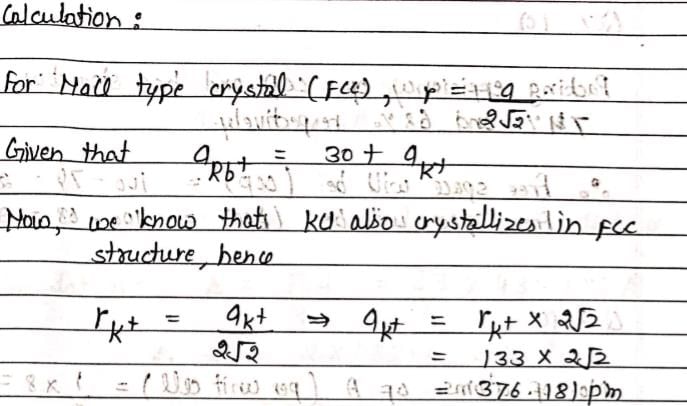 Calculation :
For Nacl type crystal (FCC), r = a / 2√2
Given that a Rb+ = 30 + a K+
Now, we know that KCl also crystallizes in FCC
structure, hence
r K+ = a K+ / 2√2 ⇒ a K+ = r K+ × 2√2
= 133 × 2√2
= 376.181 pm